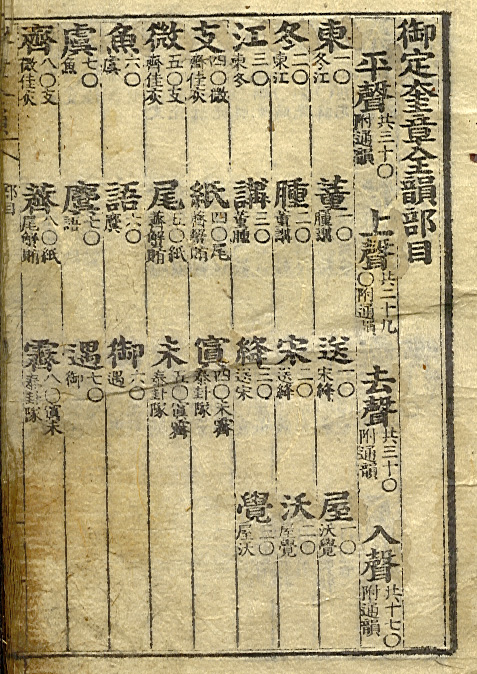 御定奎章全韻部目
平聲共三十〇附通韻 上聲共二十九〇附通韻 去聲共三十〇附通韻 入聲共十七〇附通韻
東一〇冬江 董一〇腫講 送一〇宋絳 屋一〇沃覺
冬二〇東江 腫二〇董講 宋二〇送絳 沃二〇屋覺
江三〇東冬 講三〇董腫 絳三〇送宋 覺三〇屋沃
支四〇微齊佳灰 紙四〇尾薺解賄 寘四〇未霽泰卦隊
微五〇支齊佳灰 尾五〇紙薺解賄 未五〇寘霽泰卦隊
魚六〇虞 語六〇麌 御六〇遇
虞七〇魚 麌七〇語 遇七〇御
齊八〇支微佳灰 薺八〇紙尾解賄 霽八〇寘未泰卦隊
部目